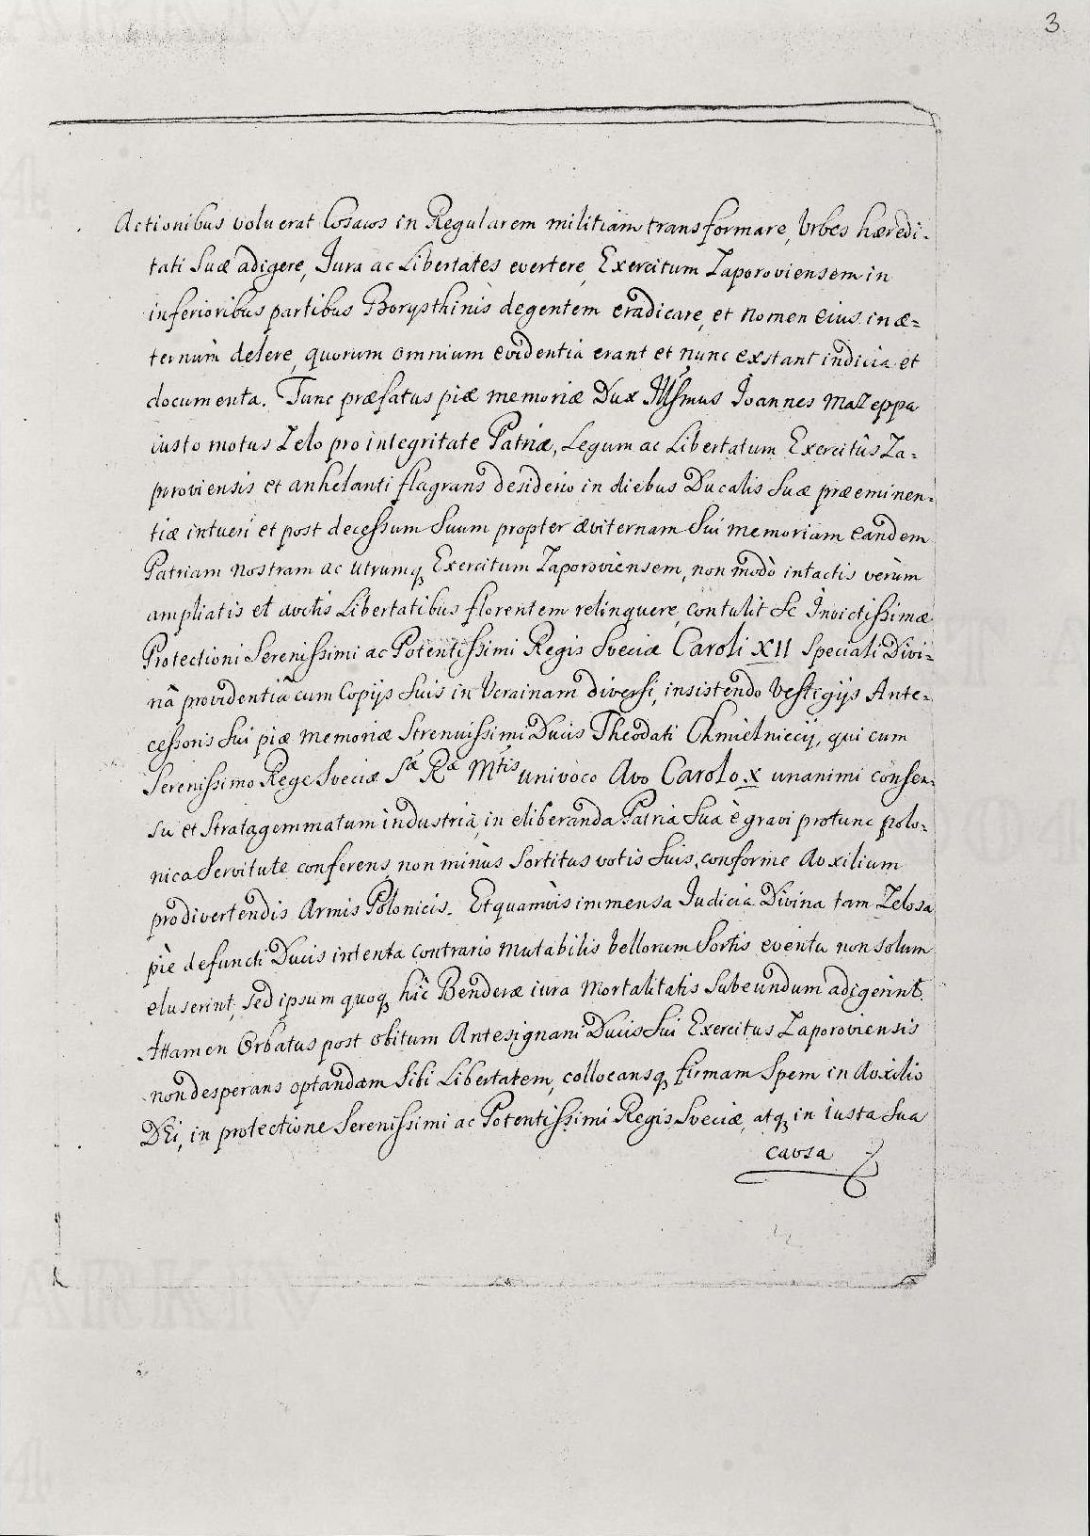 3
Actionibus voluerat Cosacos in Regularem militiam transformare, Vrbes hæredi-
tati Suæ adigere, Jura ac Libertates evertere, Exercitum Zaporoviensem in
inferioribus partibus Borysthinis degentem eradicare, et nomen eius in æ=
ternum delere, quorum omnium evidentia erant et nunc exstant indicia et
documenta. Tunc præfatus piæ memoriæ Dux Illsmus Joannes Mazeppa
iusto motus Zelo pro integritate Patriæ, Legum ac Libertatum Exercitûs Za=
poroviensis et anhelanti flagrans desiderio in diebus Ducalis Suæ præeminen=
tiæ intueri et post decessum Suum propter æviternam Sui memoriam eandem
Patriam nostram ac utrumq Exercitum Zaporoviensem, non modò intactis verùm
ampliatis et auctis Libertatibus florentem relinquere, contulit Se Invictissimæ
Protectioni Serenissimi ac Potentissimi Regis Sveciæ Caroli XII Speciali Divi=
nâ providentiâ cum Copijs Suis in Vcrainam diversi, insistendo Vestigijs Ante=
cessoris Sui piæ memoriæ Strenuissimi Ducis Theodati Chmielniecij, qui cum
Serenissimo Rege Sveciæ Sæ Ræ Mtis univoco Avo Carolo X unanimi consen=
su et Stratagemmatum industriâ, in eliberanda Patria Sua è gravi protunc polo=
nica Servitute conferens, non minùs Sortitus votis Suis, conforme Auxilium
pro divertendis Armis Polonicis. Et quamvis immensa Judicia Divina tam Zelosa
piè defuncti Ducis intenta contrario mutabilis bellorum Sortis eventu non solum
eluserint, sed ipsum quoq hîc Benderæ iura mortalitatis Subeundum adigerint.
Attamen Orbatus post obitum Antesignani Ducis Sui Exercitus Zaporoviensis
non desperans optandam Sibi Libertatem, collocansq firmam Spem in Auxilio
DEi, in protectione Serenissimi ac Potentissimi Regis Sveciæ, atq in iusta Sua
causa